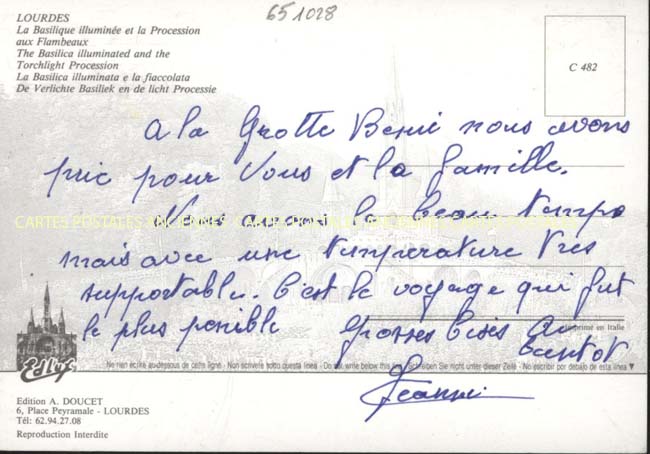 651028
LOURDES
La Basilique illuminée et la Procession
aux Flambeaux
The Basilica illuminated and the
Torchlight Procession
La Basilica illuminata e la fiaccolata
De Verlichte Basiliek en de licht Processie
C 482
A la Grotte Benie nous avons
prié pour Vous et la famille.
Nous avons le beau temps
CARTES POSTALES ANCIENNES
mais avec une température très
supportable. C'est le voyage qui fut
le plus penible Grosses bises
Imprimé en Italie
bientot
Edllys
Ne rien écrire au-dessous de cette ligne - Non scrivere sotto questa linea - Do not write below this line - Schreiben Sie nicht unter dieser Zeile - No escribir por debajo de esta linea ▼
Jeannine
Edition A. DOUCET
6, Place Peyramale - LOURDES
Tél: 62.94.27.08
Reproduction Interdite